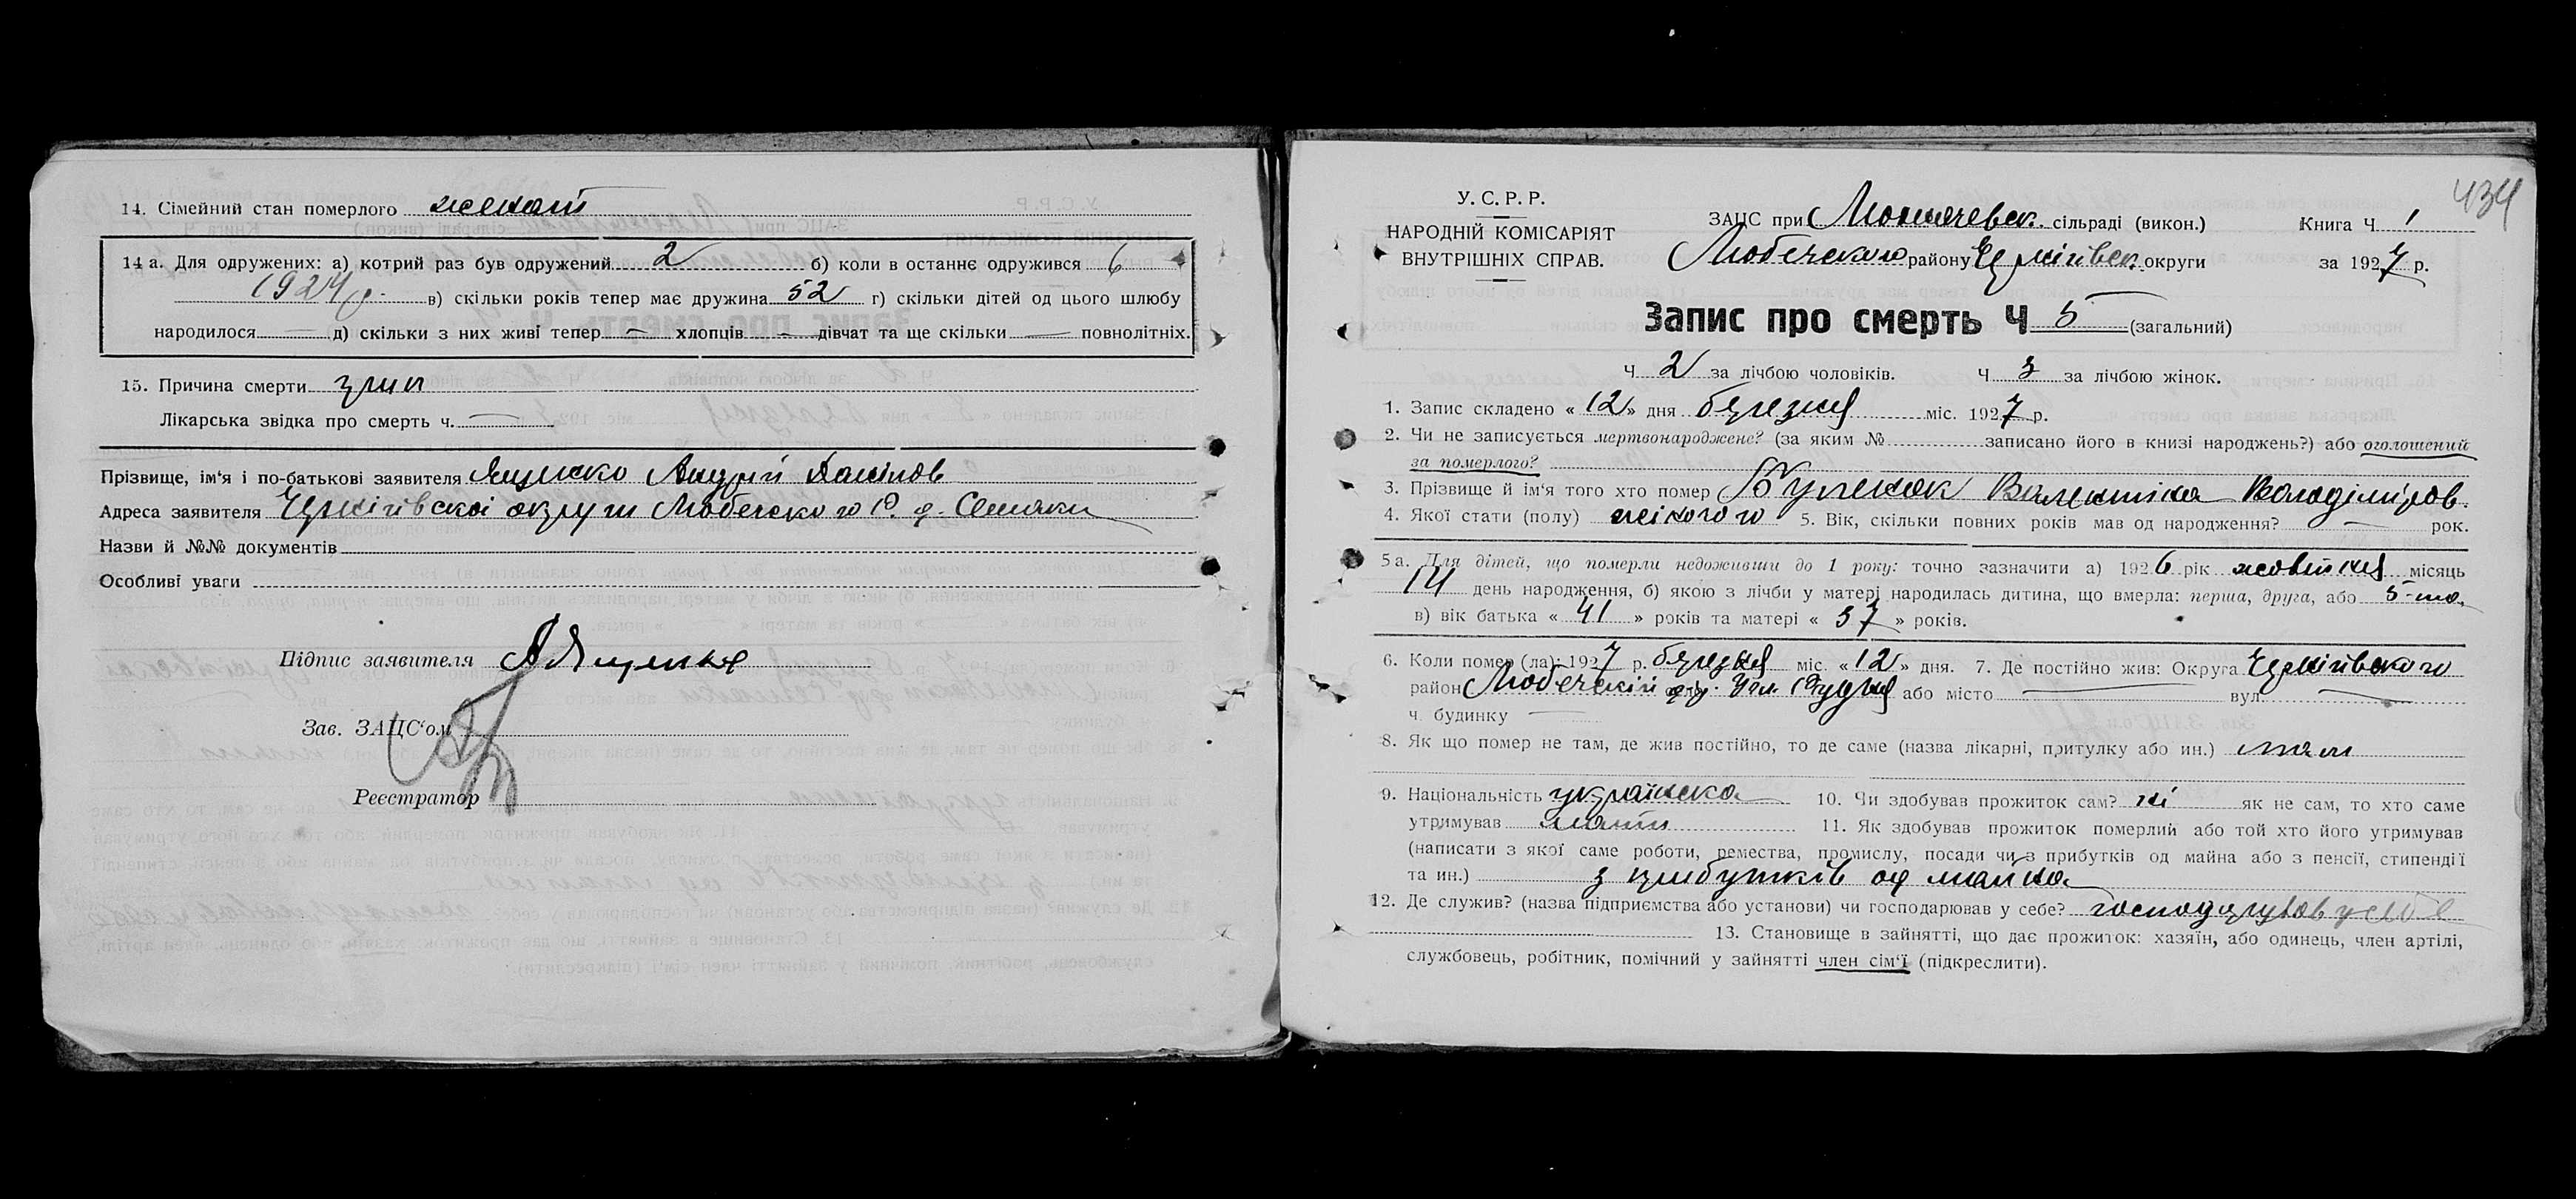 14. Сімейний стан померлого женат
14 а. Для одружених: а) котрий раз був одружений 2 б) коли в останнє одружився 6
1924 р. в) скільки років тепер має дружина 52 г) скільки дітей од цього шлюбу
народилося — д) скільки з них живі тепер — хлопців — дівчат та ще скільки — повнолітніх.
15. Причина смерти грип
Лікарська звідка про смерть ч. —
Прізвище, ім'я і по-батькові заявителя Ященко Андрій Данілов
Адреса заявителя Чернігівскоі округи Любечского Р. д. Семаки
Назви й №№ документів
Особливі уваги
Підпис заявителя А Ященко
Зав. ЗАЦС'ом
Реєстратор
434
У. С. Р. Р.
НАРОДНІЙ КОМІСАРІЯТ
ВНУТРІШНІХ СПРАВ.
ЗАЦС при сільраді (викон.) Книга Ч 1
Любечского району Чернігівск. округи за 1927 р.
Запис про смерть Ч 5 (загальний)
Ч 2 за лічбою чоловіків. Ч 3 за лічбою жінок.
1. Запис складено « 12 » дня березня міс. 1927 р.
2. Чи не записується мертвонароджене? (за яким № записано його в книзі народжень?) або оголошений
за померлого?
3. Прізвище й ім'я того хто помер Валентіна Володіміров.
4. Якої стати (полу) жіночого 5. Вік, скільки повних років мав од народження? — рок.
5 а. Для дітей, що померли недоживши до 1 року: точно зазначити а) 1926 рік жовтня місяць
14 день народження, б) якою з лічби у матері народилась дитина, що вмерла: перша, друга, або 5-та
в) вік батька « 41 » років та матері « 37 » років.
6. Коли помер (ла): 1927 р. березня міс. « 12 » дня. 7. Де постійно жив: Округа Чернігівского
район Любечский Рудня або місто — вул. —
ч. будинку —
8. Як що помер не там, де жив постійно, то де саме (назва лікарні, притулку або ин.) там
9. Національність українска 10. Чи здобував прожиток сам? ні як не сам, то хто саме
утримував мати 11. Як здобував прожиток померлий або той хто його утримував
(написати з якої саме роботи, ремества, промислу, посади чи з прибутків од майна або з пенсії, стипендії
та ин.) з прибутків од майна
12. Де служив? (назва підприємства або установи) чи господарював у себе? господарував у себе
13. Становище в зайнятті, що дає прожиток: хазяїн, або одинець, член артілі,
службовець, робітник, помічний у зайнятті член сім'ї (підкреслити).